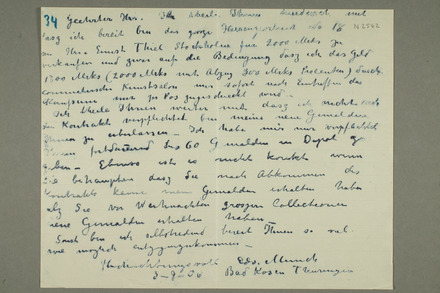 34 Geehrter Herr. Ich theile Ihnen hiedurch mit
N 2562
dasz ich bereit bin das grosze
zu Hr. Ernst Thiel Stockholm für 2000 Mcks zu
verkaufen und zwar auf die Bedingung dasz ich das Geld
1700 Mcks (2000 Mcks mit Abzug 300 Mcks Procenten) durch
Commeterche Kunstsalon mir sofort nach Eintreffen des
mir per Post zugeschickt wird –
Ich theile Ihnen weiter mit dasz ich nicht nach
den Kontrakt verpflichtet bin meine neue Gemälden
Ihnen zu überlassen – Ich habe mir nur verpflichtet
60 Gemälden in Depot zu
geben – Ebenso ist es nicht korrekt wenn
Sie behaupten dasz Sie nach Abkommen des
Kontrakts keine neue Gemälden erhalten haben
als Sie vor Weihnachten grosze Collectionen
neue Gemälden erhalten haben –
Sonst bin ich selbstredend bereit Ihnen so viel
wie möglich entgegenzukommen –
Hochachtungsvoll
Edv. Munch
Bad Kosen Thüringen